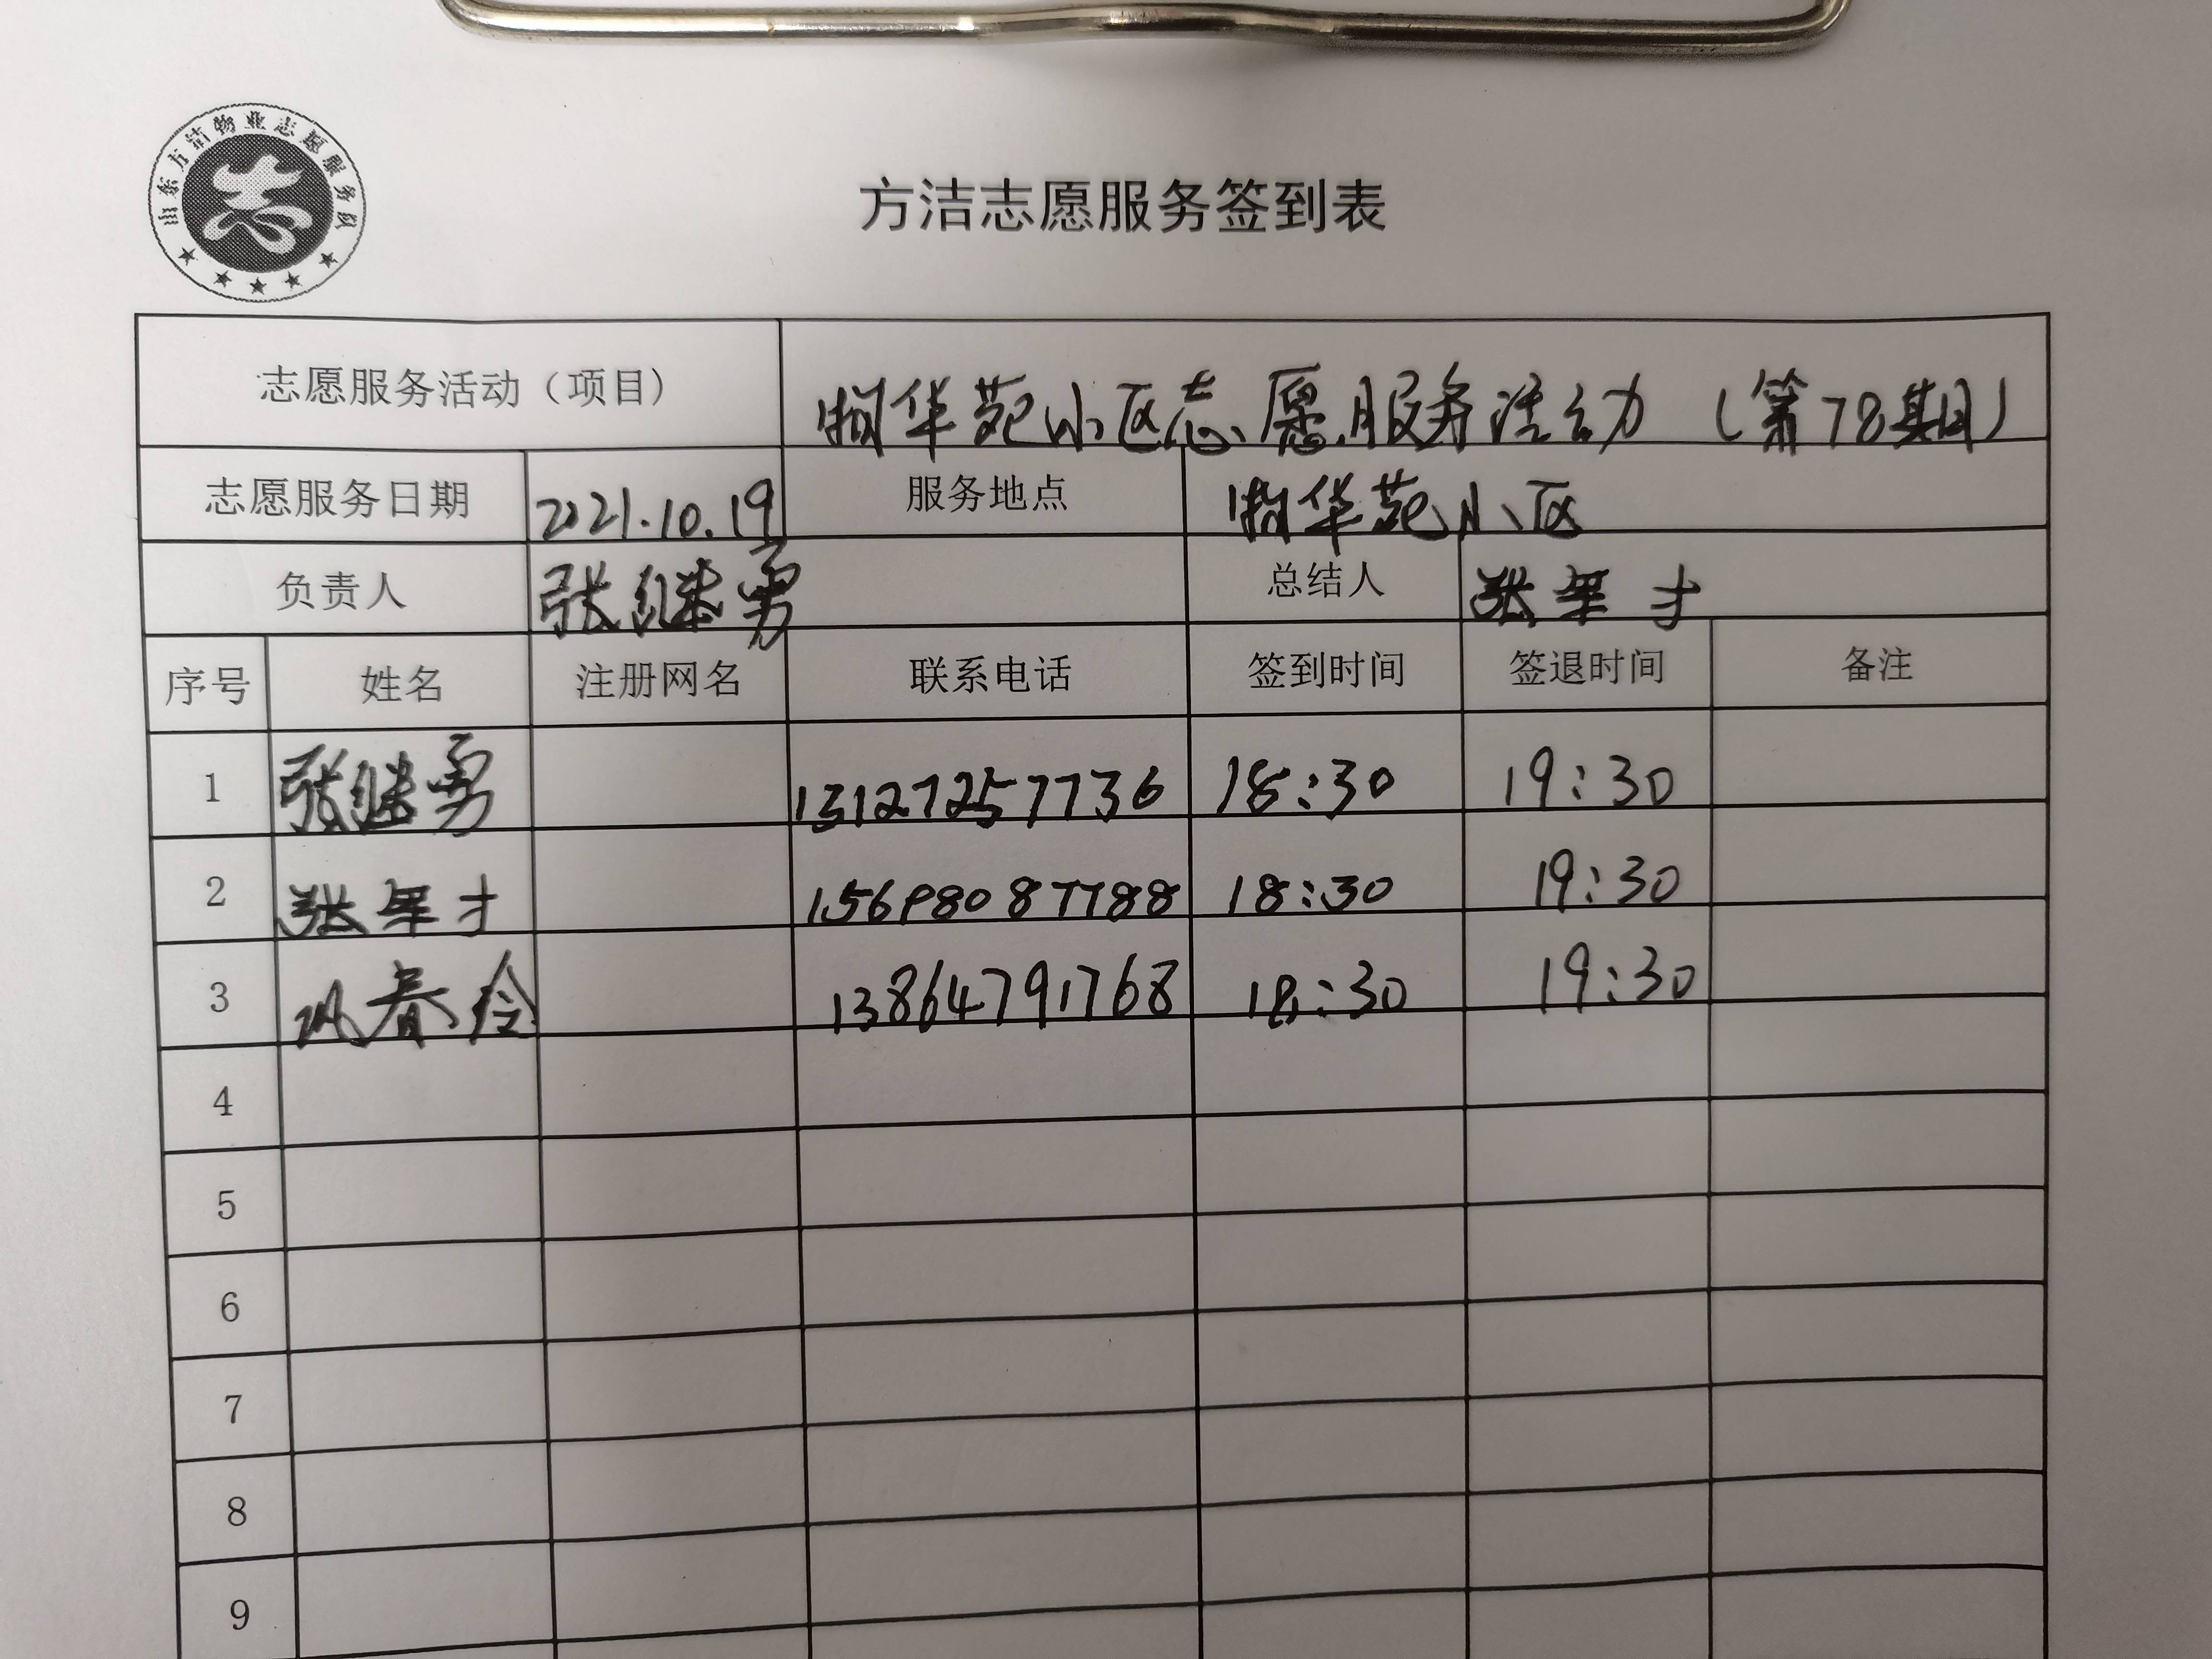 山东方洁物业志愿服务队
志
方洁志愿服务签到表
志愿服务活动（项目） 桐华苑小区志愿服务活动（第78期）
志愿服务日期 2021.10.19 服务地点 桐华苑小区
负责人 张继勇 总结人 张军才
序号 姓名 注册网名 联系电话 签到时间 签退时间 备注
1 张继勇 13127257736 18:30 19:30
2 张军才 18:30 19:30
3 春玲 13864791768 18:30 19:30
4
5
6
7
8
9